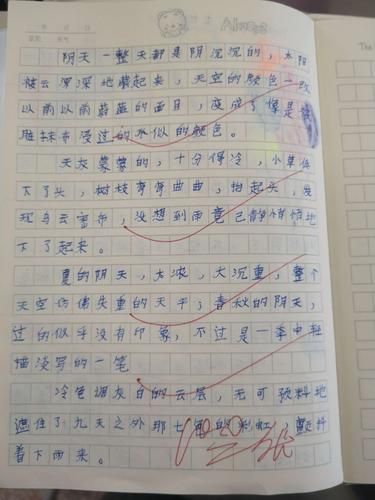 阴天一整天都是阴沉沉的，太阳
被云深深地藏起来，天空的颜色一改
以前以前蔚蓝的面目，变成了像是被
脏抹布浸过的水似的颜色。
天灰蒙蒙的，十分得冷，小草低
下了头，树枝弯弯曲曲，抬起头，发
现乌云密布，没想到雨竟已静悄悄地
下了起来。
夏的阴天，太浓，太沉重，整个
天空仿佛失重的天平；春秋的阴天，
过的似乎没有印象，不过是一季中轻
描淡写的一笔
冷色调灰白的云层，无可预料地
遮住了九天之外那七的彩虹，颤抖
着下雨来。